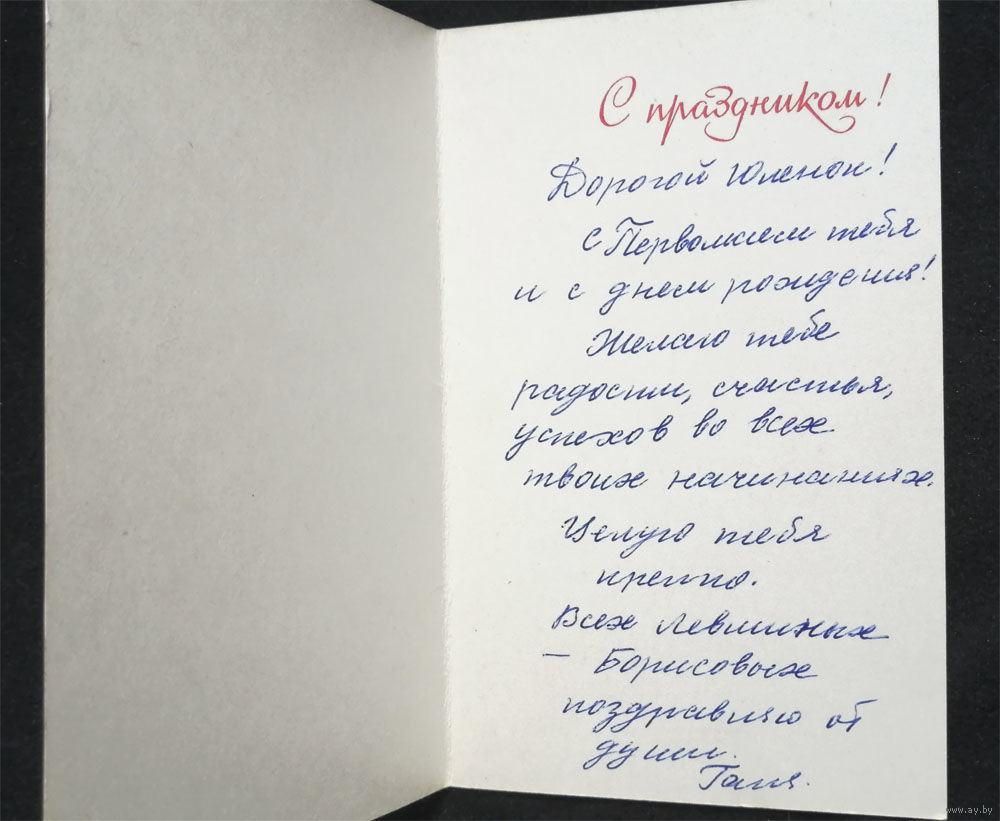 С праздником!
Дорогой Юленок!
с Первомаем тебя
и с днем рождения!
Желаю тебе
радости, счастья,
успехов во всех
твоих начинаниях.
Целую тебя
крепко.
Всех
– Борисовых
поздравляю от
души.
Таня.
www.ay.by